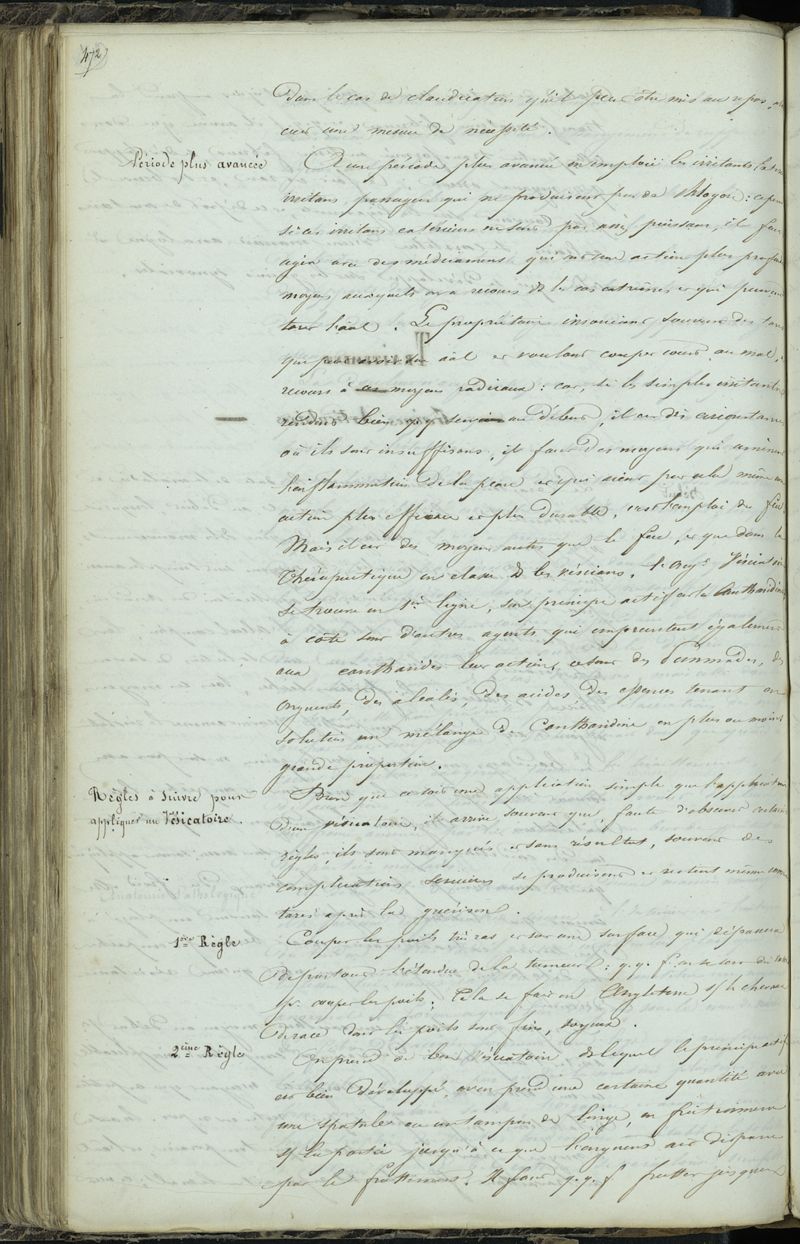 472
Dans le cas de claudication qu'il peut être mis au repos,
une mesure de nécessité.
Période plus avancée
A une période plus avancée on emploie les irritants,
irritans passagers qui ne produisent pas de
si ces irritans extérieurs ne sont pas assez puissans, il faut
agir avec des médicamens qui ont une action plus
moyens auxquels on a recours ds les cas extrêmes, et qui peuvent
tarer l'aâl. Le propriétaire insouciant souvent des tares
que aâl et voulant couper court au mal,
recours à moyens radicaux : car, si les simples irritants
bien q.q. services au début, il est des circonstances
où ils sont insuffisans, il faut des moyens qui amènent
l'inflammation de la peau et qui aient par cela même une
action plus efficace et plus durable, c'est l'emploi du feu.
Mais il est des moyens autres que le feu, et que dans la
Thérapeutique on classe ds les vésicans. L'ong.t Vésicatoire
se trouve en 1ère ligne, son principe actif est la Cantharidine
à côté sont d'autres agents qui empruntent également
aux cantharides leur action, ce sont des Pommades, des
onguents, des alcalis, des acides des essences tenant en
solution un mélange de Cantharidine en plus ou moins
grande proportion.
Règles à suivre pour
appliquer un Vésicatoire.
Bien que ce soit une application simple que l'application
d'un vésicatoire, il arrive souvent que, faute d'observer certaines
règles, ils sont manqués et sans résultat, souvent des
complications se produisent et restent même comme
tares après la guérison.
1ère Règle
Couper les poils très ras et sur une surface qui dépassera
de partout l'étendue de la tumeur : q.q.f. on se sert du
pr. couper les poils ; cela se fait en Angleterre s/ le cheval
de race dont les poils sont fins, soyeux.
2ème Règle
On prend de bon vésicatoire ds lequel le principe actif
est bien développé, on en prend une certaine quantité avec
une spatule ou un tampon de linge, on frictionne
s/ la partie jusqu'à ce que l'onguent ait disparu
par le frottement. Il faut q.q.f. frotter jusque